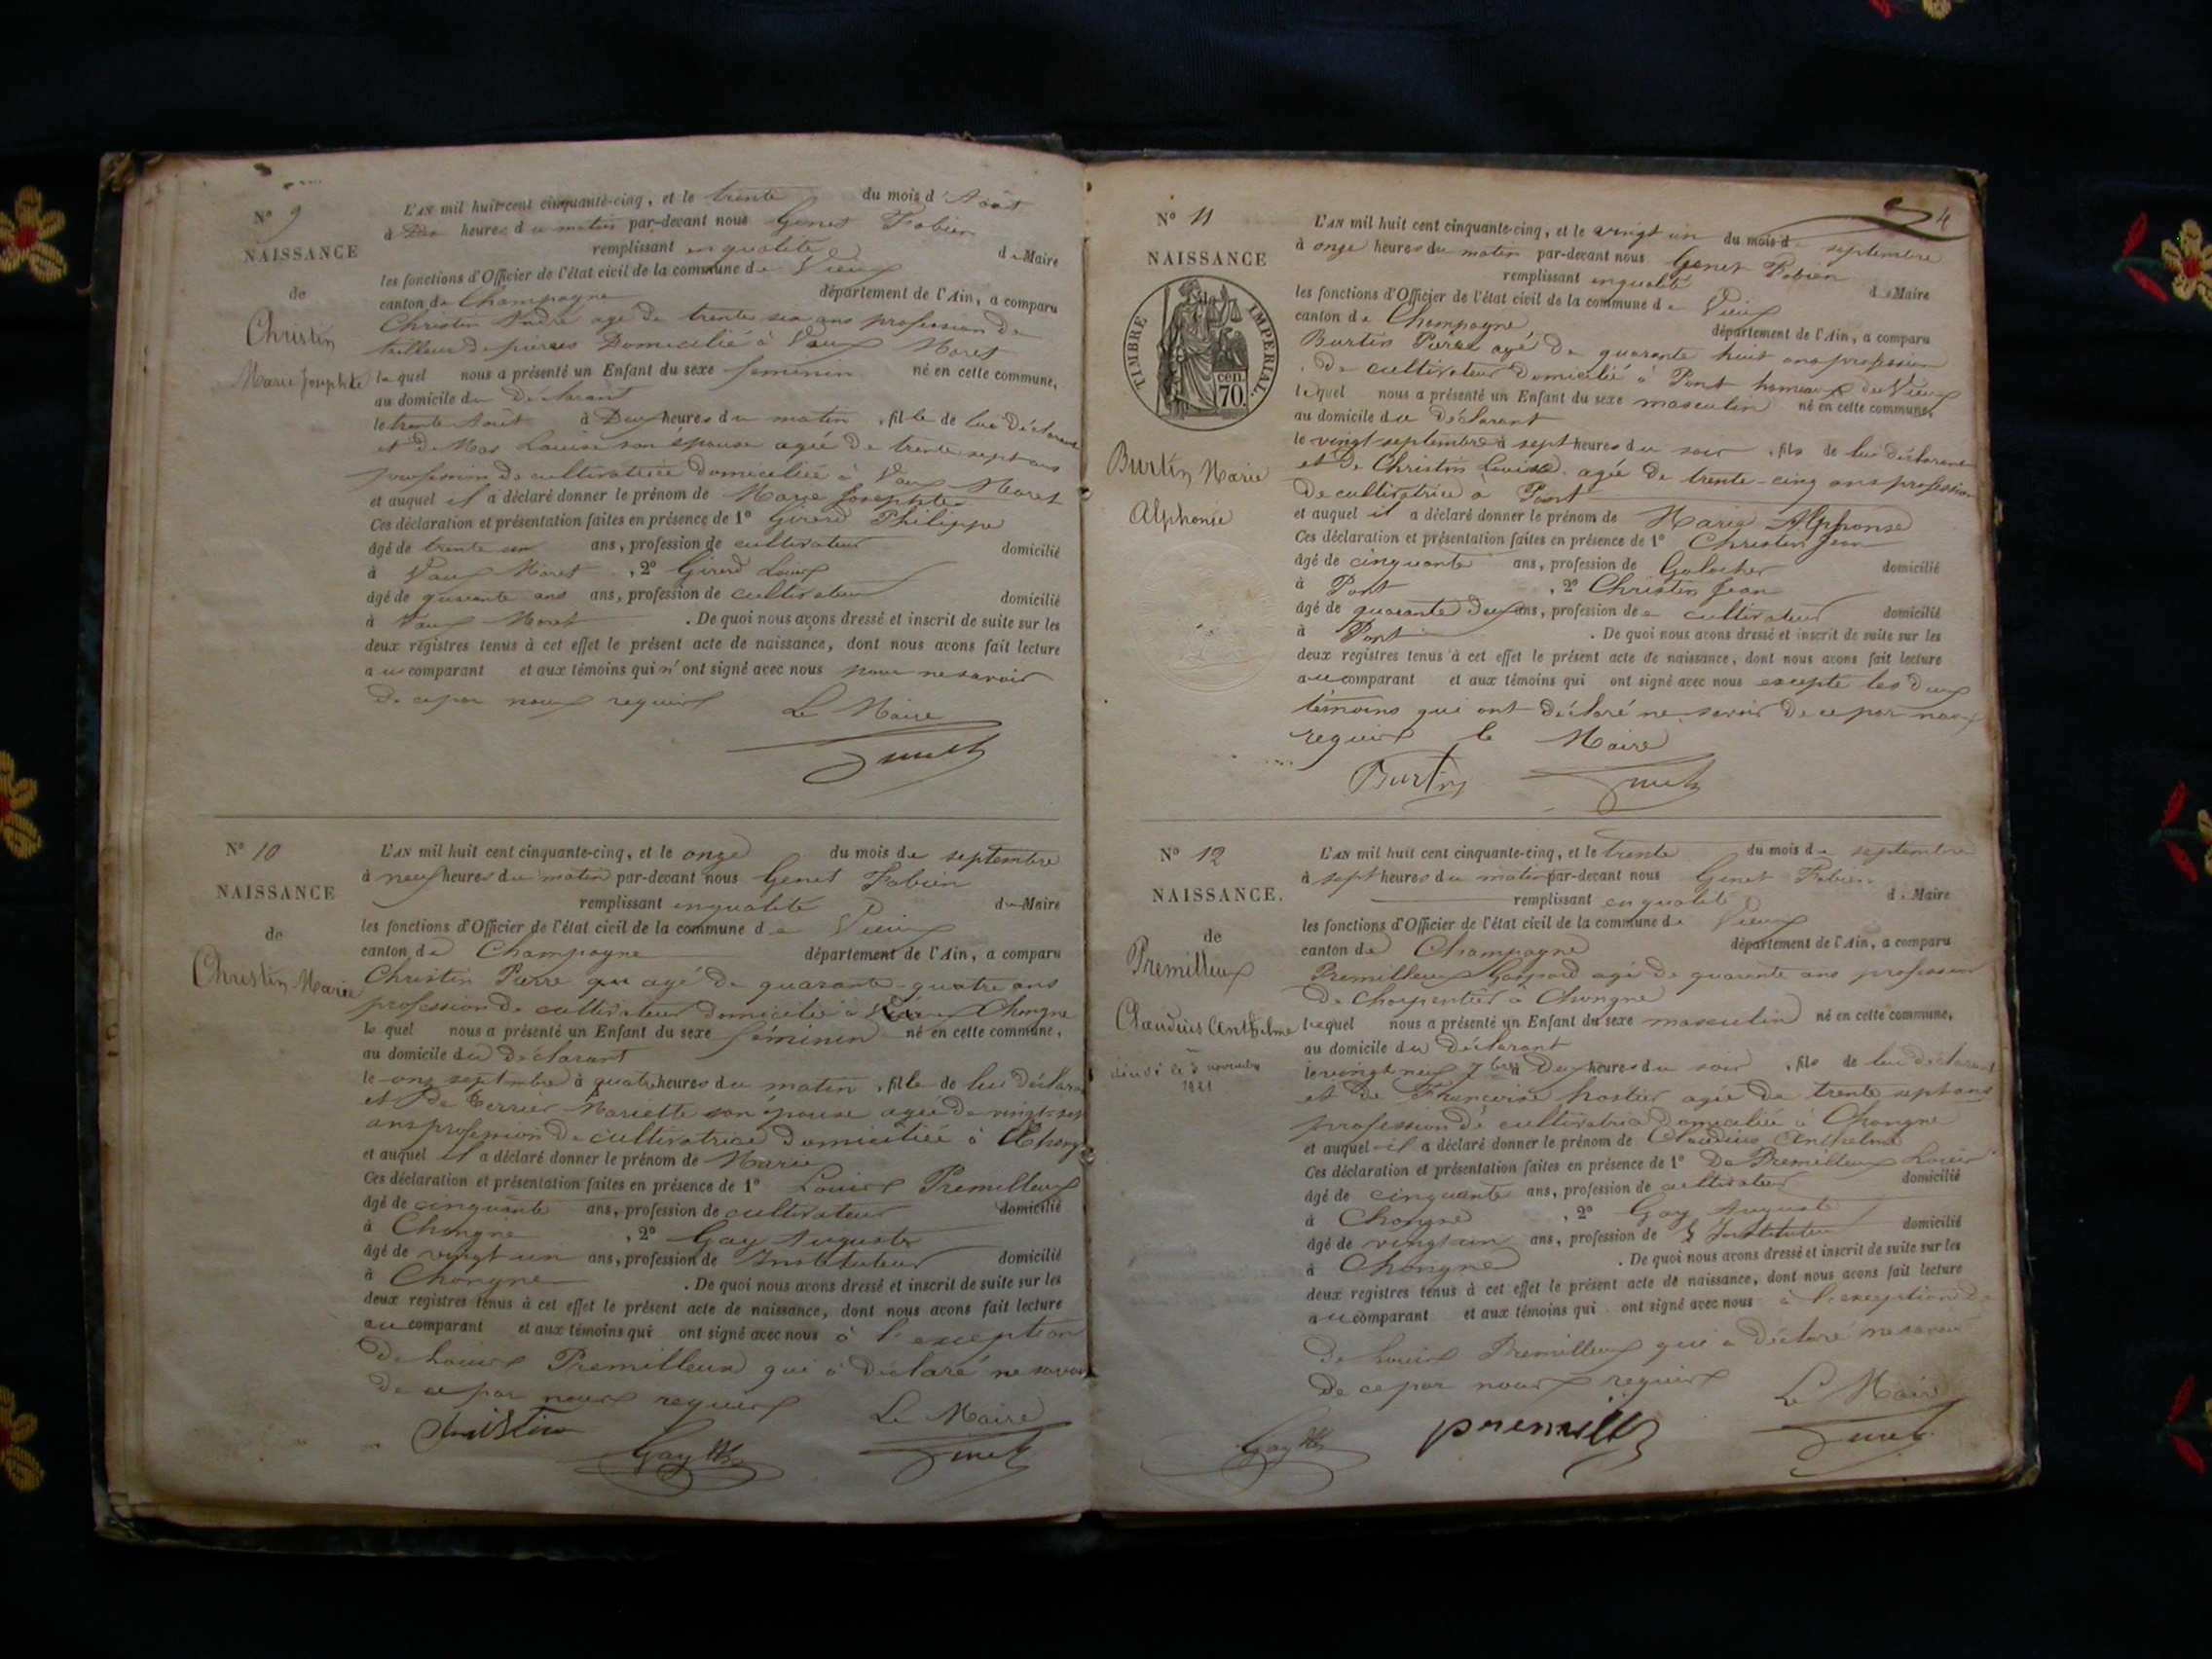 N° 9
NAISSANCE
de
Christin
Marie Josephte
L'AN mil huit cent cinquante-cinq, et le trente du mois d'Août
à heures du matin par-devant nous Genet Fabien
remplissant en qualité de Maire
les fonctions d'Officier de l'état civil de la commune de Vieux
canton de Champagne département de l'Ain, a comparu
Christin André agé de trente six ans profession de
tailleur de pierres Domicilié à Vaux Moret
lequel nous a présenté un Enfant du sexe feminin né en cette commune,
au domicile du Déclarant
le trente Août à Deux heures du matin, fille de lui Déclarant
et de Mos Louise son épouse agée de trente sept ans
profession de cultivatrice domiciliée à Vaux Moret
et auquel il a déclaré donner le prénom de Marie Josephte
Ces déclaration et présentation faites en présence de 1° Girerd Philippe
âgé de trente ans, profession de cultivateur domicilié
à Vaux Moret, 2° Girerd Louis
âgé de quarante ans ans, profession de cultivateur domicilié
à Vaux Moret. De quoi nous avons dressé et inscrit de suite sur les
deux registres tenus à cet effet le présent acte de naissance, dont nous avons fait lecture
au comparant et aux témoins qui n'ont signé avec nous pour ne savoir
De ce par nous requis Le Maire
Genet
N° 10
NAISSANCE
de
Christin Marie
L'AN mil huit cent cinquante-cinq, et le onze du mois de septembre
à neuf heures du matin par-devant nous Genet Fabien
remplissant en qualité du Maire
les fonctions d'Officier de l'état civil de la commune de Vieux
canton de Champagne département de l'Ain, a comparu
Christin Pierre agé de quarante-quatre ans
profession de cultivateur domicilié à Chongne
le quel nous a présenté un Enfant du sexe féminin né en cette commune,
au domicile du Déclarant
le onze septembre à quatre heures du matin, fille de lui déclarant
et De Terrier Mariette son épouse agée de vingt sept
ans profession De cultivatrice Domiciliée à Chongne
et auquel il a déclaré donner le prénom de Marie
Ces déclaration et présentation faites en présence de 1° Louis Premilleux
âgé de cinquante ans, profession de cultivateur domicilié
à Chongne, 2° Gay Auguste
âgé de vingt un ans, profession de Instituteur domicilié
à Chongne. De quoi nous avons dressé et inscrit de suite sur les
deux registres tenus à cet effet le présent acte de naissance, dont nous avons fait lecture
au comparant et aux témoins qui ont signé avec nous à l'exception
De Louis Premilleux qui à Déclaré ne savoir
De ce par nous requis Le Maire
Christin Gay Genet
4
N° 11
NAISSANCE
de
TIMBRE IMPERIAL.
70. cen
Burtin Marie
Alphonse
L'AN mil huit cent cinquante-cinq, et le vingt un du mois de septembre
à onze heures du matin par-devant nous Genet Fabien
remplissant en qualité de Maire
les fonctions d'Officier de l'état civil de la commune de Vieux
canton de Champagne département de l'Ain, a comparu
Burtin Pierre agé De quarante huit ans profession
De cultivateur Domicilié à Pont hameau De Vieux
lequel nous a présenté un Enfant du sexe masculin né en cette commune,
au domicile du Déclarant
le vingt septembre à sept heures du soir, fils de lui déclarant
et De Christin Louise agée de trente-cinq ans profession
De cultivatrice à Pont
et auquel il a déclaré donner le prénom de Marie Alphonse
Ces déclaration et présentation faites en présence de 1° Christin Jean
âgé de cinquante ans, profession de Galocher domicilié
à Pont, 2° Christin Jean
âgé de quarante Deux ans, profession de cultivateur domicilié
à Pont. De quoi nous avons dressé et inscrit de suite sur les
deux registres tenus à cet effet le présent acte de naissance, dont nous avons fait lecture
au comparant et aux témoins qui ont signé avec nous excepté les Deux
témoins qui ont déclaré ne savoir De ce par nous
requis le Maire
Burtin Genet
N° 12
NAISSANCE.
de
Premilleux
Claudius Anthelme
décédé le 3 novembre
1921
L'AN mil huit cent cinquante-cinq, et le trente du mois de septembre
à sept heures du matin par-devant nous Genet Fabien
remplissant en qualité de Maire
les fonctions d'Officier de l'état civil de la commune de Vieux
canton de Champagne département de l'Ain, a comparu
Premilleux Gaspard agé De quarante ans profession
De charpentier à Chongne
lequel nous a présenté un Enfant du sexe masculin né en cette commune,
au domicile du Déclarant
le vingt neuf 7bre à Deux heures du soir, fils de lui déclarant
et De Françoise hostier agée De trente sept ans
profession de cultivatrice Domiciliée à Chongne
et auquel il a déclaré donner le prénom de Claudius Anthelme
Ces déclaration et présentation faites en présence de 1° De Premilleux Louis
âgé de cinquante ans, profession de cultivateur domicilié
à Chongne, 2° Gay Auguste
âgé de vingt un ans, profession de Instituteur domicilié
à Chongne. De quoi nous avons dressé et inscrit de suite sur les
deux registres tenus à cet effet le présent acte de naissance, dont nous avons fait lecture
au comparant et aux témoins qui ont signé avec nous à l'exception De
De Louis Premilleux qui a Déclaré ne savoir
De ce par nous requis Le Maire
Gay premille Genet